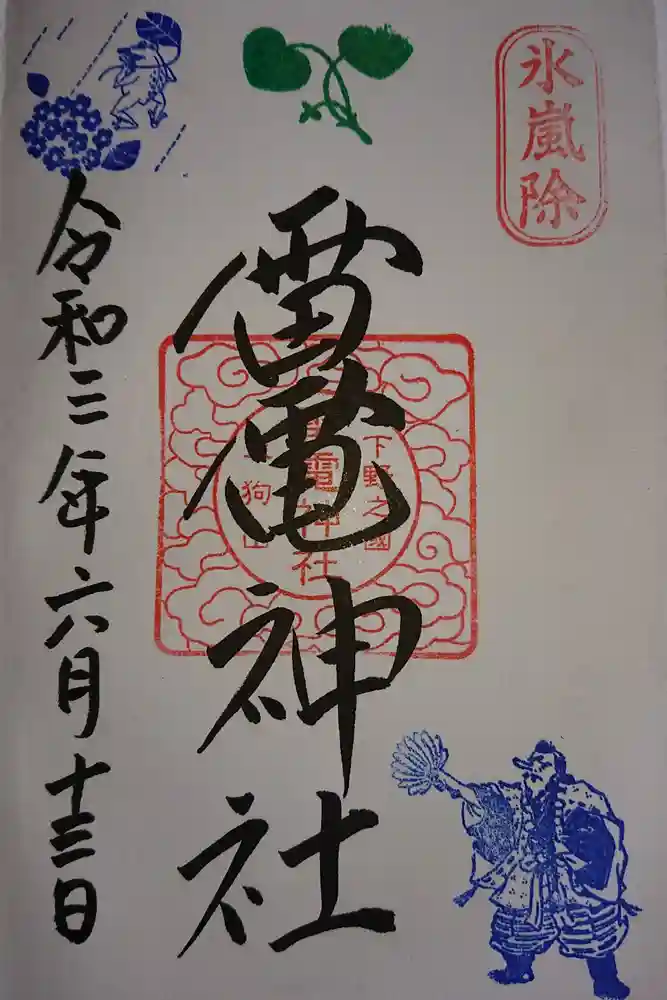 氷嵐除
雷電神社
下野之國
雷電神社
狗山
令和三年六月十三日